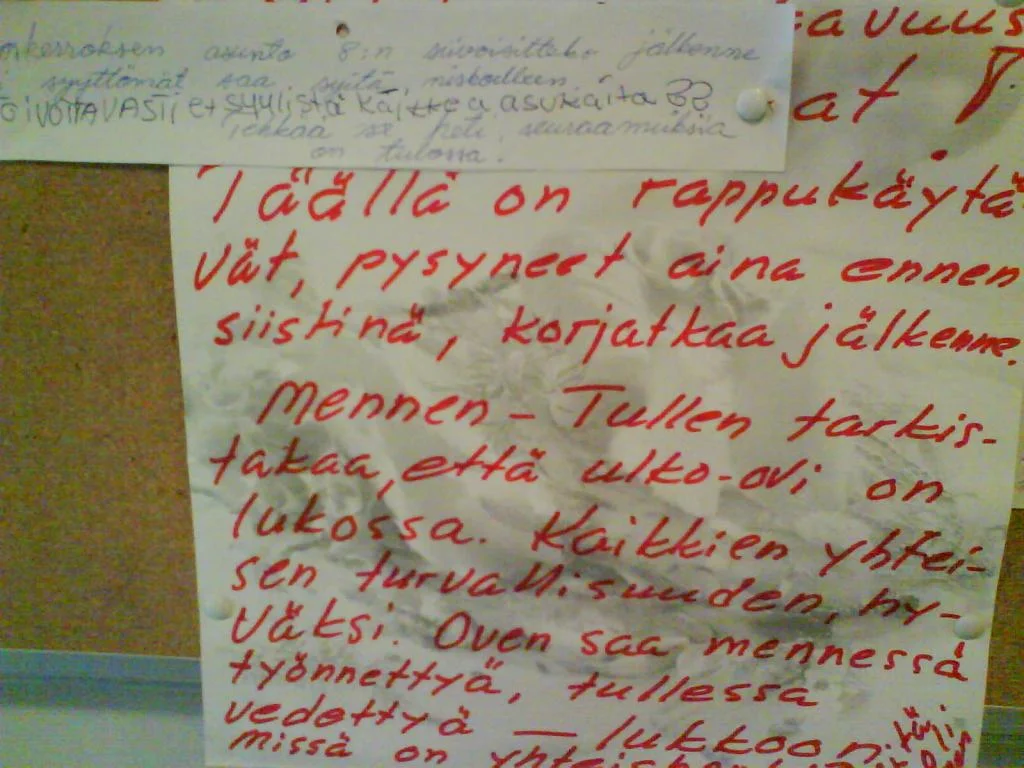 asunto 8:n siivoisitteko jälkenne
syyttömät saa syitä niskoilleen.
TOIVOTTAVASTI et SYYLISTÄ KAIKKEA ASUKAITA ??
Tehkää se heti, seuraamuksia
on tulossa.
avuus
at !
Täällä on rappukäytä
vät, pysyneet aina ennen
siistinä, korjatkaa jälkenne.
Mennen - Tullen tarkis-
takaa, että ulko-ovi on
lukossa. Kaikkien yhtei-
sen turvallisuuden, hy-
väksi. Oven saa mennessä
työnnettyä, tullessa
vedettyä — lukkoon
missä on